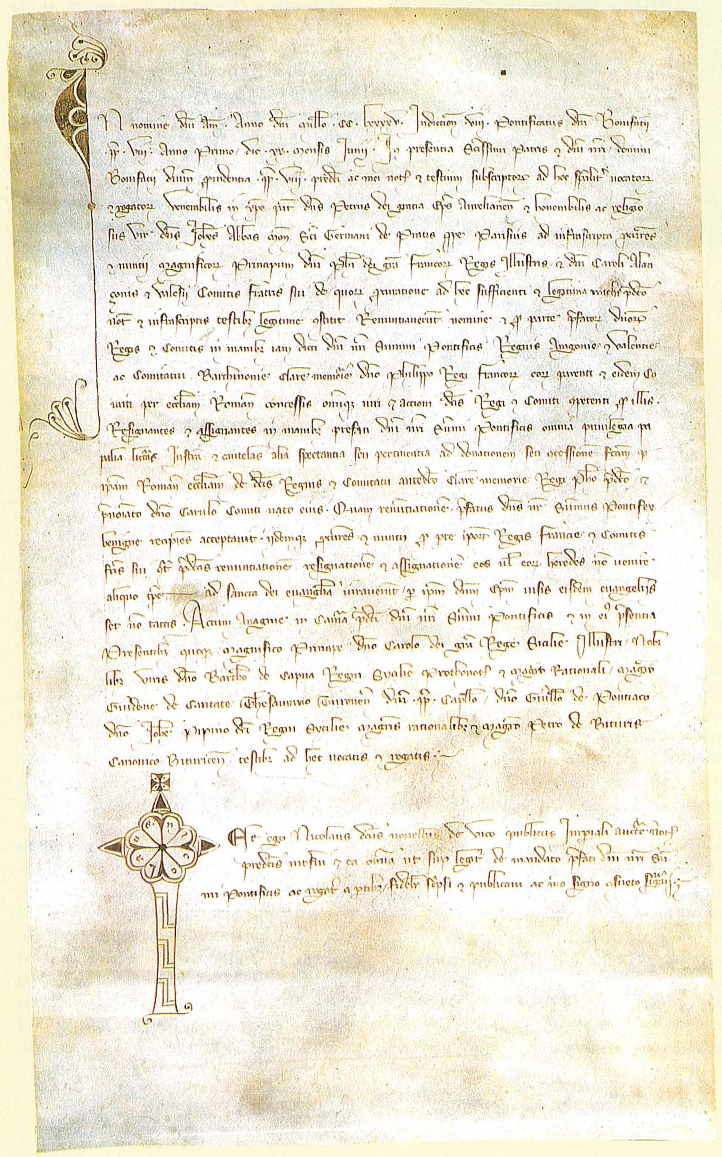 IN nomine dni Am. Anno dni millo. CC. lxxxxv. Indictione viii. Pontificatus dni Bonifatii
pp. viii. Anno Primo, die xx. mensis Junij. In presentia Sanctissimi Patris & dni nri domini
Bonifatii divina providentia pp. viii. & testium subscriptorum ad hec specialiter vocatorum
& rogatorum venerabilis in xpo pater dns Petrus dei gratia Eps Aurelianen & honorabilis ac religio
sus vir dns Johes Abbas Mon Sci Germani de Pratis prope Parisius ad infrascripta procuratores
& nuntii magnificorum Principum dni Phi dei gra Francorum Regis Illustris & dni Caroli Alan
conis & Valesii Comitis fratris sui de quorum procuratione ad hec sufficienti & legitima
not & infrascriptis testibus legitime constitit. Renuntiaverunt nomine & pro parte prefatorum dnorum
Regis & Comitis in manibus iam dicti dni nri Summi Pontificis Regnis Aragonie & Valentie
ac Comitatui Barchinonie clare memorie dno Philippo Regi Francorum eorum parenti & eidem Co
miti per ecclesiam Romanam concessis omnique iuri & actioni dnis Regi & Comiti competenti pro illis.
Resignantes & assignantes in manibus prefati dni nri Summi Pontificis omnia privilegia pa
palia licteras Instrumenta & cautelas alia spectantia seu pertinentia ad donationem seu concessionem factam per
ipsam Romanam ecclesiam de dictis Regnis & Comitatu antedicto Clare memorie Regi Pho predicto &
prenotato dno Carulo Comiti nato eius. Quam renuntiationem prefatus dns nr Summus Pontifex
benigne recipiens acceptavit. iidemque procuratores & nuntii pro parte ipsorum Regis Francie & Comitis
fratris sui contra predictas renuntiationem resignationem & assignationem eos vel eorum heredes non venire
aliquo tempore ad sancta dei evangelia iuraverunt, per ipsum dnum Epm visis eisdem evangeliis
set non tactis. Actum Anagnie in Camera predicti dni nri Summi Pontificis & in eius presentia
Presentibus quoque magnifico Principe dno Carolo dei gra Rege Sicilie Illustri, Nobi
libus viris dno Bartholomeo de Capua Regni Sicilie Protonotario & magistro Rationali, magistro
Guidone de Caritate Thesaurario dni pp. Capellano, dno Guillo de Pontiaco
dno Johe Pipino dicti Regni Sicilie magistris rationalibus & magistro Petro de Bituris
Canonico Bituricen testibus ad hec vocatis & rogatis.
Et ego Nicolaus dictus novellus de Vico publicus Imperiali auctoritate Notarius
predictis interfui & ea omnia ut supra legitur de mandato prefati dni nri Sum
mi Pontificis ac rogatu fideliter scripsi & publicavi ac meo signo consueto signavi